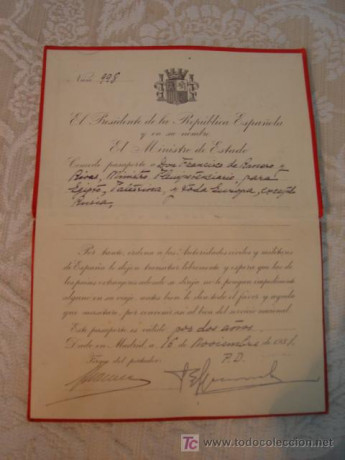 Núm. 998
El Presidente de la República Española
y en su nombre
El Ministro de Estado
Concede pasaporte a Don Francisco de Ranero y
Rivas, Ministro Plenipotenciario, para
Egipto, Palestina, y toda Europa, excepto
Rusia.
Por tanto, ordena a las Autoridades civiles y militares
de España le dejen transitar libremente y espera que las de
los países extranjeros donde se dirija no le pongan impedimento
alguno en su viaje, antes bien le den todo el favor y ayuda
que necesitare, por convenir así al bien del servicio nacional.
Este pasaporte es válido por dos años.
Dado en Madrid, a 16 de Noviembre de 193
Firma del portador, P.D.
todocoleccion.net